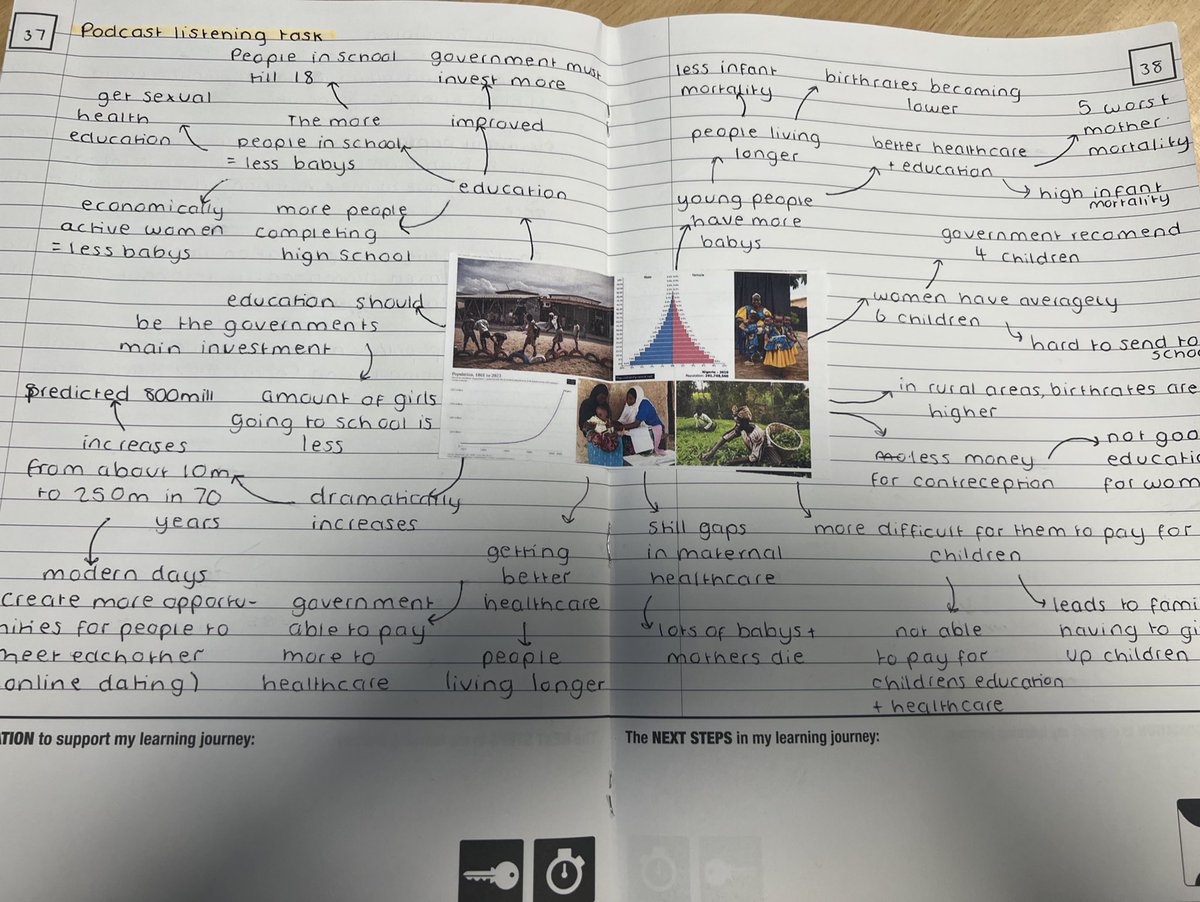 37
Podcast listening task
People in school
till 18
government must
invest more
get sexual
health
education
The more
people in school
= less babys
improved
education
economically
active women
= less babys
more people
completing
high school
education should
be the governments
main investment
amount of girls
going to school is
less
predicted 800mill
increases
from about 10m
to 250m in 70
years
dramatically
increases
modern days
create more opportu-
nities for people to
meet eachother
online dating)
government
able to pay
more to
healthcare
getting
better
healthcare
people
living longer
38
less infant
mortality
birthrates becoming
lower
people living
longer
better healthcare
+ education
5 worst
mother
mortality
high infant
mortality
young people
have more
babys
government recomend
4 children
women have averagely
6 children
hard to send to
in rural areas, birthrates are
higher
less money
for contreception
not
for
more difficult for them to pay for
children
still gaps
in maternal
healthcare
lots of babys +
mothers die
not able
to pay for
childrens education
+ healthcare
leads to
having to
up children
Male
Female
Nigeria - 2019
Population, 1800 to 2023
to support my learning journey:
The NEXT STEPS in my learning journey: